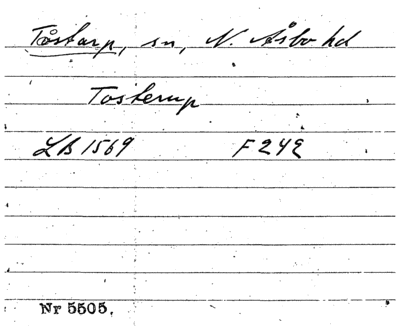 Tåstarp, sn, N. Åsbo hd
Tosterup
LB 1569 F 242
Nr 5505.